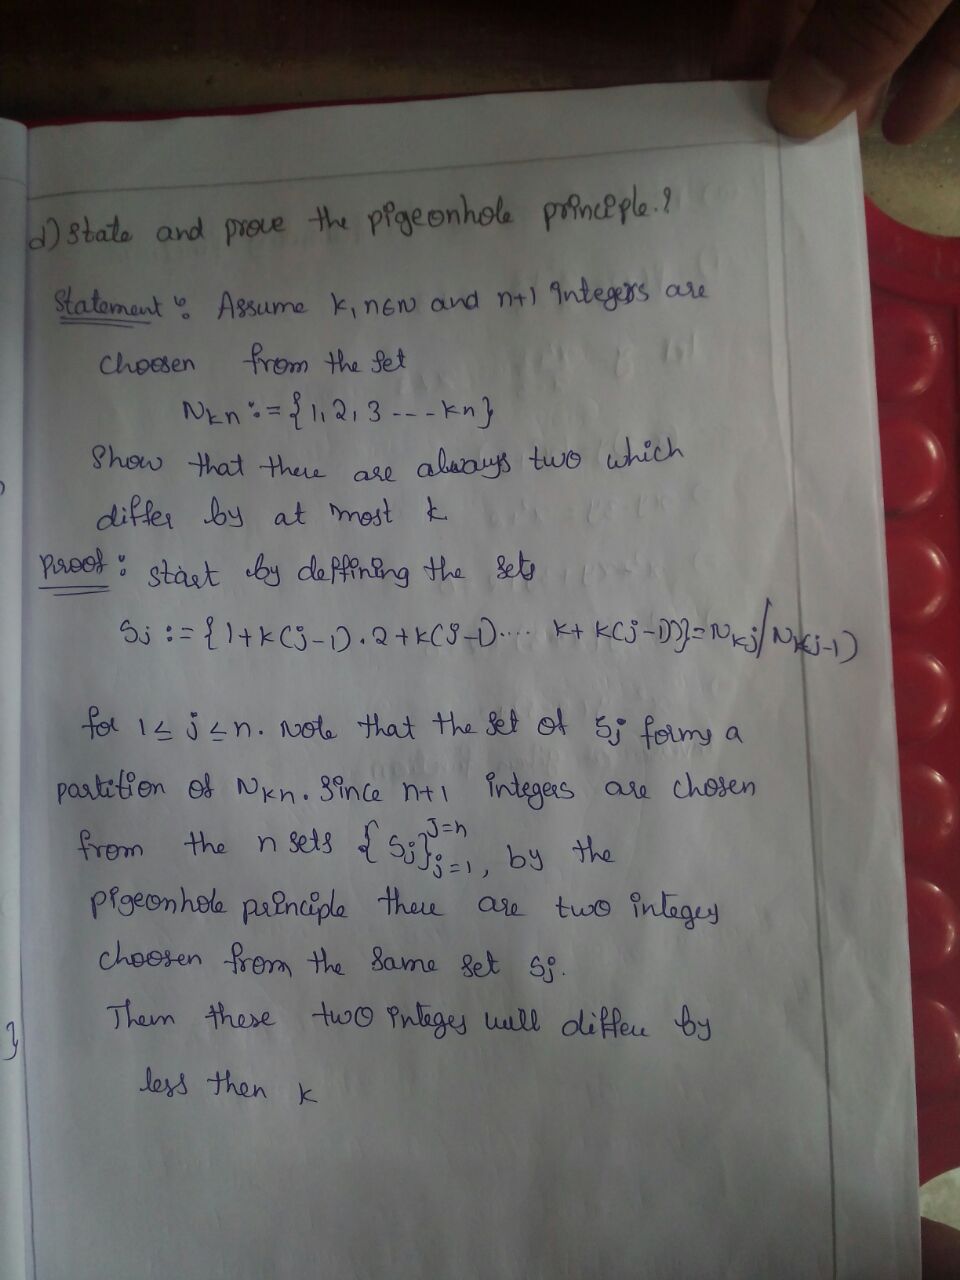 d) State and prove the pigeonhole principle.?
Statement : Assume k, n∈N and n+1 integers are
choosen from the set
Nkn := {1, 2, 3 ---- kn}
Show that there are always two which
differ by at most k
Proof : start by deffining the sets
Sj := {1+k(j-1). 2+k(j-1).... k+k(j-1))}=Nkj/Nk(j-1)
for 1≤ j ≤n. Note that the set of Sj forms a
partition of Nkn. Since n+1 integers are chosen
from the n sets {Sj}j=1^j=n, by the
pigeonhole principle there are two integes
choosen from the same set Sj.
Them these two integes will differ by
less then k
}